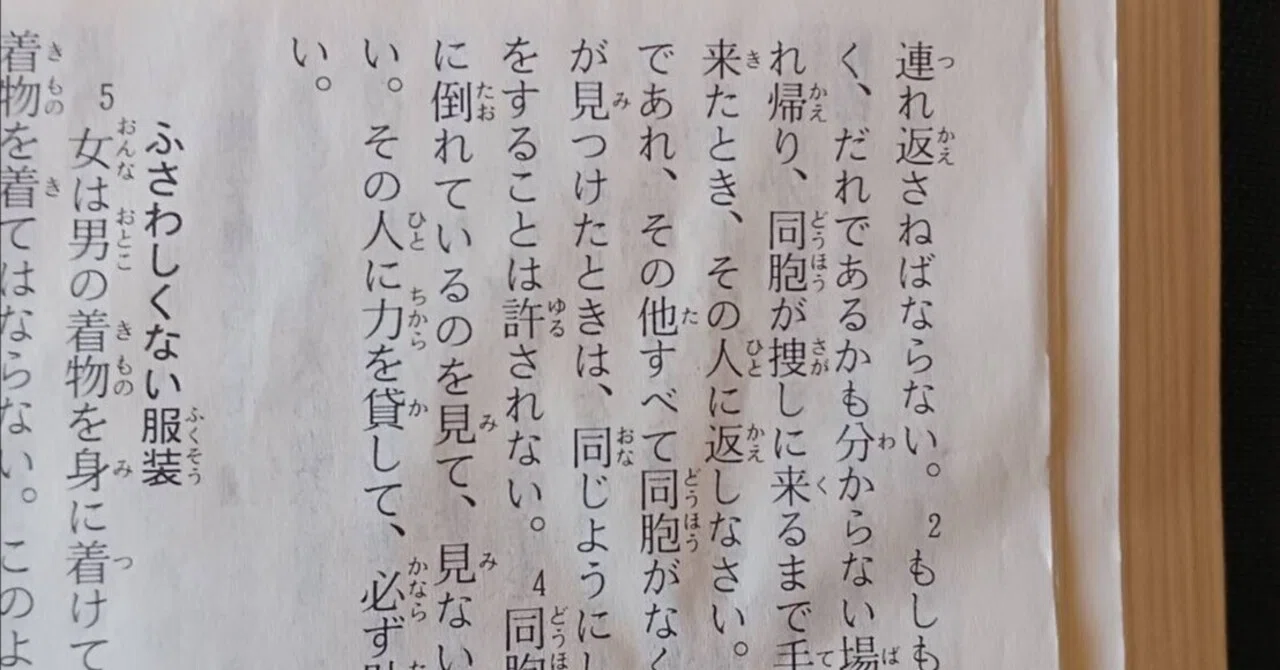 連れ返さねばならない。2もしも
く、だれであるかも分からない場
れ帰り、同胞が捜しに来るまで手
来たとき、その人に返しなさい。
であれ、その他すべて同胞がなく
が見つけたときは、同じようにし
をすることは許されない。4同胞
に倒れているのを見て、見ない
い。その人に力を貸して、必ず助
い。
ふさわしくない服装
5女は男の着物を身に着けて
着物を着てはならない。このよ